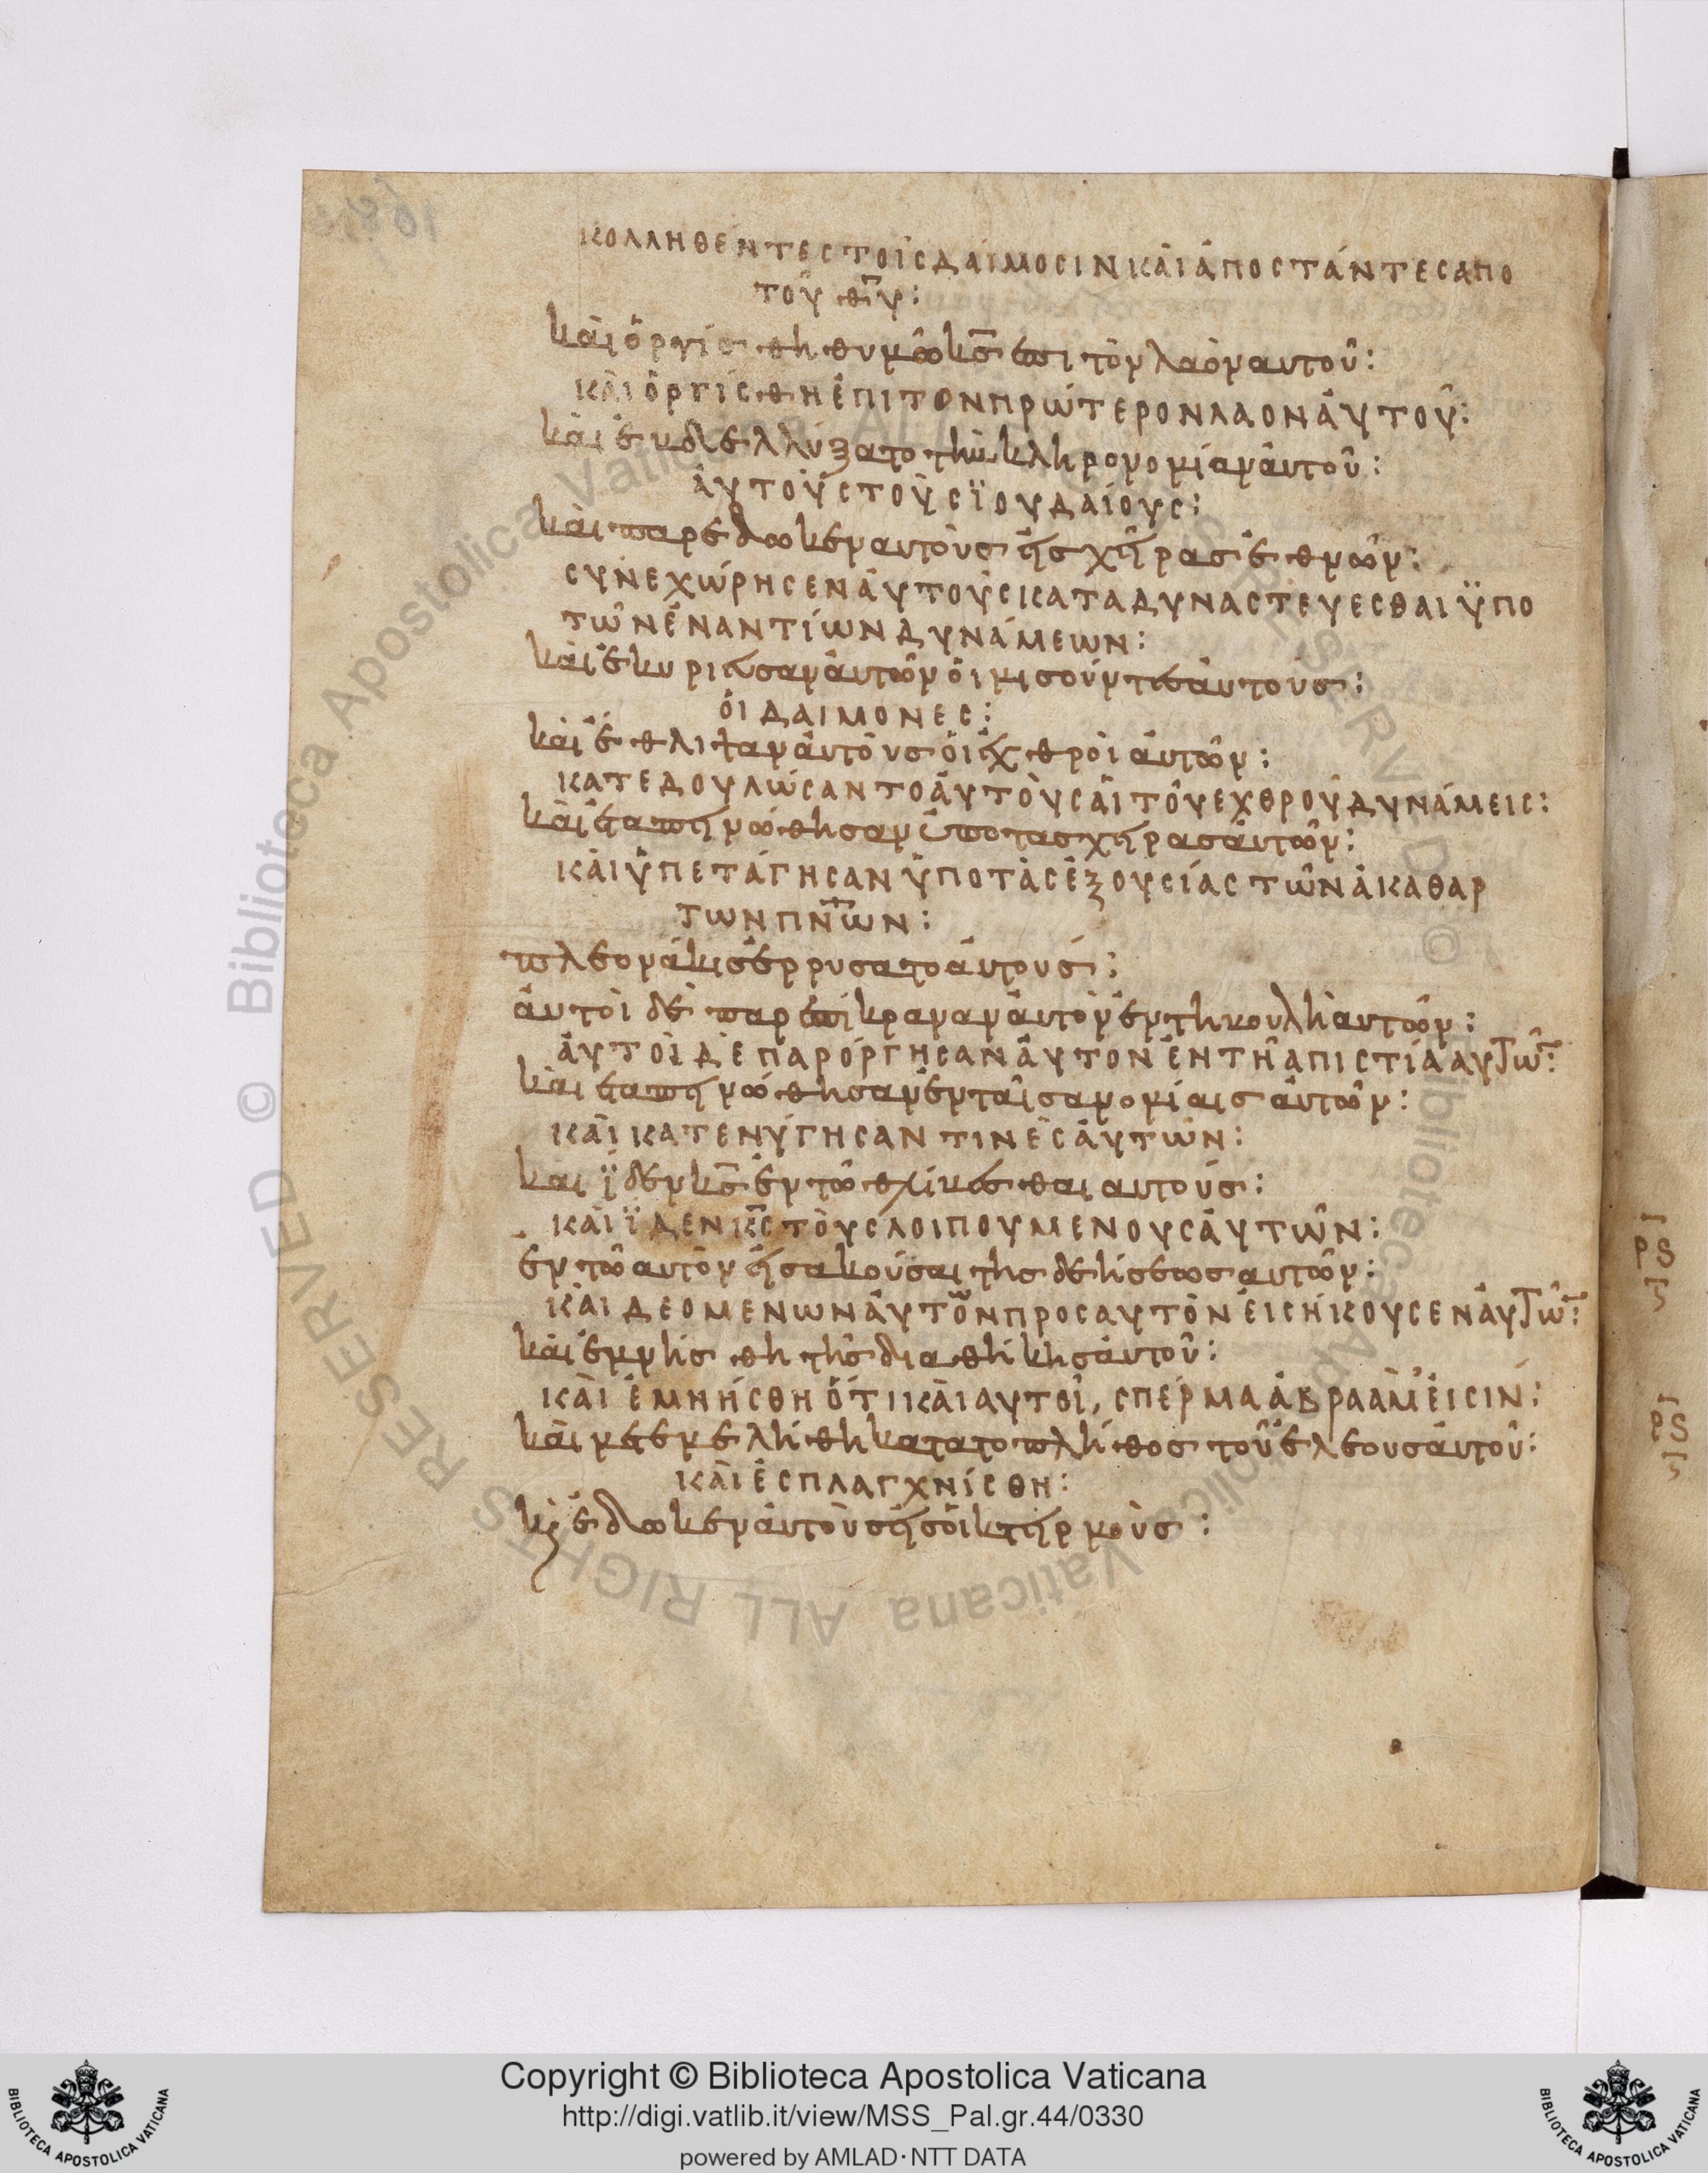 ΚΟΛΛΗΘΕΝΤΕΣ ΤΟΙΣ ΔΑΙΜΟΣΙΝ ΚΑΙ ΑΠΟΣΤΑΝΤΕΣ ΑΠΟ
ΤΟΥ ΘΥ:
καὶ ὀργίσθη θυμῶ κς ἐπι τὸν λαὸν αυτοῦ:
ΚΑΙ ΟΡΓΙΣΘΗ ΕΠΙ ΤΟΝ ΠΡΩΤΕΡΟΝ ΛΑΟΝ ΑΥΤΟΥ:
καὶ ἐβδελλύξατο τὴν κληρονομίαν ἀυτοῦ:
ΑΥΤΟΥΣ ΤΟΥΣ ΪΟΥΔΑΙΟΥΣ:
καὶ παρέδωκεν αυτοὺς εἰς χεῖρας ἐθνῶν:
ΣΥΝΕΧΩΡΗΣΕΝ ΑΥΤΟΥΣ ΚΑΤΑΔΥΝΑΣΤΕΥΕΣΘΑΙ ΫΠΟ
ΤΩΝ ΕΝΑΝΤΙΩΝ ΔΥΝΑΜΕΩΝ:
καὶ ἐκυριευσαν ἀυτῶν ὁι μισούντες ἀυτούς:
ΟΙ ΔΑΙΜΟΝΕΣ:
καὶ ἔθλιψαν ἀυτοὺς ὁι ἐχθροὶ ἀυτῶν:
ΚΑΤΕΔΟΥΛΩΣΑΝΤΟ ΑΥΤΟΥΣ ΑΙ ΤΟΥ ΕΧΘΡΟΥ ΔΥΝΑΜΕΙΣ:
καὶ ἐταπεινώθησαν ὑπο τας χεῖρας ἀυτῶν:
ΚΑΙ ΥΠΕΤΑΓΗΣΑΝ ΥΠΟ ΤΑΣ ΕΞΟΥΣΙΑΣ ΤΩΝ ΑΚΑΘΑΡ
ΤΩΝ ΠΝΤΩΝ:
πλεονάκις ἐρρυσατο ἀυτούς:
ἀυτοὶ δὲ παρεπίκραναν ἀυτὸν ἐν τη βουλὴ αυτῶν:
ΑΥΤΟΙ ΔΕ ΠΑΡΟΡΓΗΣΑΝ ΑΥΤΟΝ ΕΝ ΤΗ ΑΠΙΣΤΙΑ ΑΥΤΩ:
καὶ ἐταπεινώθησαν ἐν ταῖς ανομίαις ἀυτῶν:
ΚΑΙ ΚΑΤΕΝΥΓΗΣΑΝ ΤΙΝΕΣ ΑΥΤΩΝ:
καὶ ἴδεν κς ἐν τῶ θλίβεσθαι αυτούς:
ΚΑΙ ΪΔΕΝ ΚΣ ΤΟΥΣ ΛΟΙΠΟΥΜΕΝΟΥΣ ΑΥΤΩΝ:
ἐν τῶ αυτὸν εἰσακούσαι της δεήσεως αυτῶν:
ΚΑΙ ΔΕΟΜΕΝΩΝ ΑΥΤΟΝ ΠΡΟΣ ΑΥΤΟΝ ΕΙΣΗΚΟΥΣΕΝ ΑΥΤΩ:
καὶ ἐμνήσθη τῆς διαθήκης ἀυτοῦ:
ΚΑΙ ΕΜΝΗΣΘΗ ΟΤΙ ΚΑΙ ΑΥΤΟΙ, ΣΠΕΡΜΑ ΑΒΡΑΑΜ ΕΙΣΙΝ:
καὶ μετεμελήθη κατα το πλήθος τοῦ ἐλέους ἀυτοῦ:
ΚΑΙ ΕΣΠΛΑΓΧΝΙΣΘΗ:
κ ἔδωκεν ἀυτοὺς εἰς ὀικτειρμοὺς:
Copyright © Biblioteca Apostolica Vaticana
http://digi.vatlib.it/view/MSS_Pal.gr.44/0330
powered by AMLAD·NTT DATA